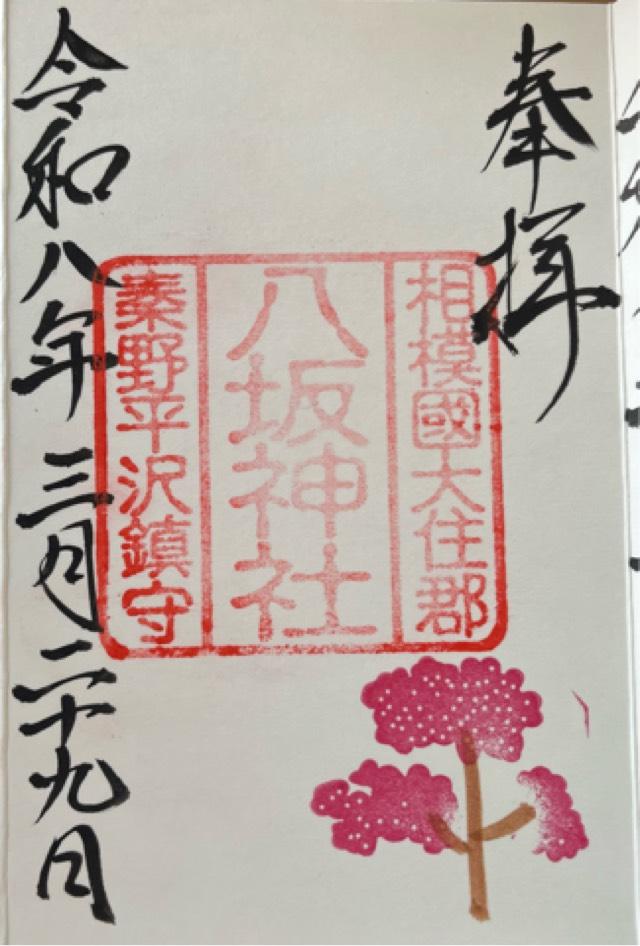 奉拝
相模國大住郡
八坂神社
秦野平沢鎮守
令和八年三月二十九日